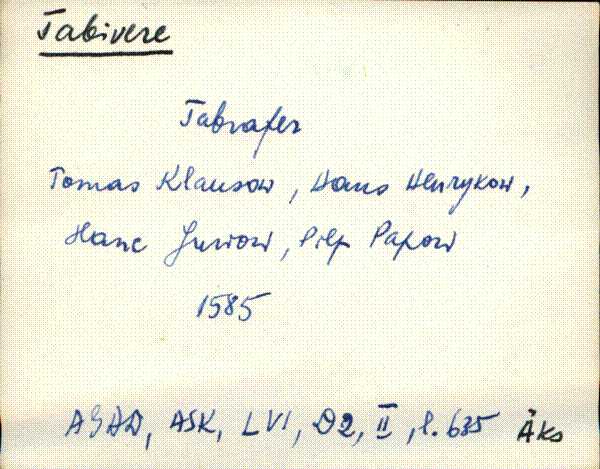 Tabivere
Tabrafer
Tomas Klausow, Hans Henrykow,
Hanc Juriow, Pilp Papow
1585
AGAD, ASK, LVI, D2, II, l. 635 Äks